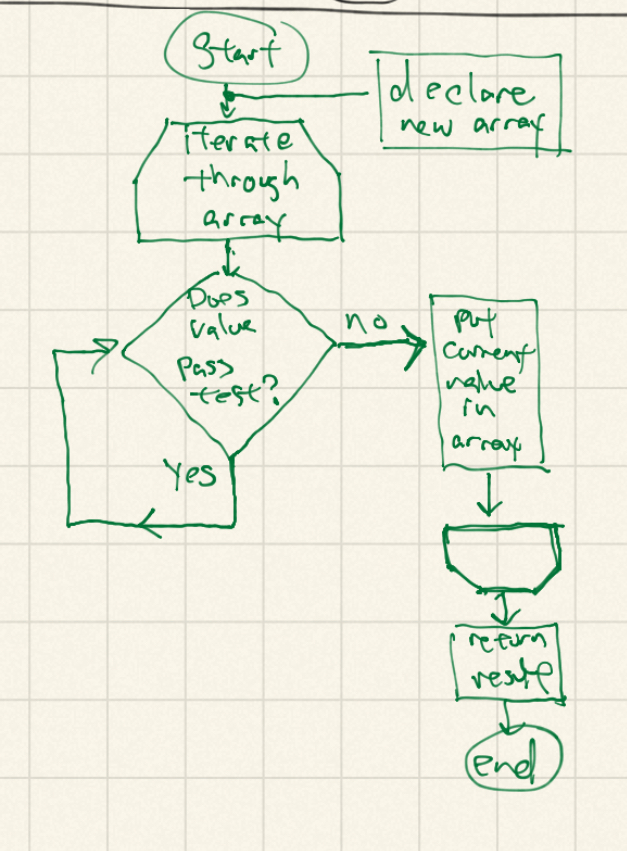 Start
declare
new array
iterate
through
array
Does
value
Pass
test?
no
Yes
put
current
value
in
array
return
result
end